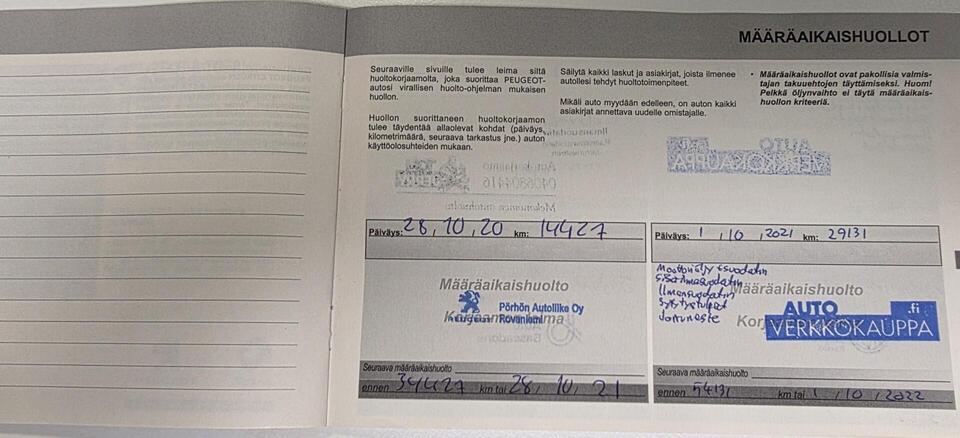 MÄÄRÄAIKAISHUOLLOT
Seuraaville sivuille tulee leima siltä
huoltokorjaamolta, joka suorittaa PEUGEOT-
autosi virallisen huolto-ohjelman mukaisen
huollon.
Huollon suorittaneen huoltokorjaamon
tulee täydentää allaolevat kohdat (päiväys,
kilometrimäärä, seuraava tarkastus jne.) auton
käyttöolosuhteiden mukaan.
Säilytä kaikki laskut ja asiakirjat, joista ilmenee
autollesi tehdyt huoltotoimenpiteet.
Mikäli auto myydään edelleen, on auton kaikki
asiakirjat annettava uudelle omistajalle.
• Määräaikaishuollot ovat pakollisia valmis-
tajan takuuehtojen täyttämiseksi. Huom!
Pelkkä öljynvaihto ei täytä määräaikais-
huollon kriteeriä.
AUTO
VERKKOKAUPPA
0406804416
Päiväys: 28, 10, 20 km: 14427
Määräaikaishuolto
Pörhön Autoliike Oy
PEUGEOT Rovaniemi
Korjaamon leima
Seuraava määräaikaishuolto
ennen 34427 km tai 28, 10, 21
Päiväys: 1, 10, 2021 km: 29131
Moottoriöljy + suodatin
Sisäilmasuodatin
Ilmansuodatin
Sytytystulpat
Jarruneste
Määräaikaishuolto
AUTO .fi
VERKKOKAUPPA
Seuraava määräaikaishuolto
ennen 54131 km tai 1, 10, 2022